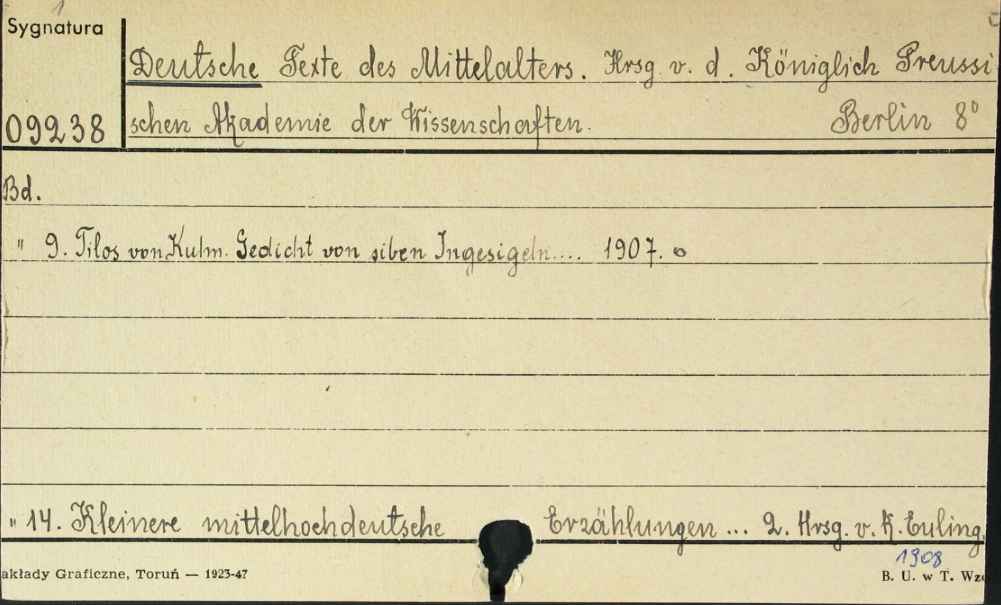 1
Sygnatura
Deutsche Texte des Mittelalters. Hrsg. v. d. Königlich Preussi
09238 schen Akademie der Wissenschaften. Berlin 8°
Bd.
" 9. Tilos von Kulm. Gedicht von siben Ingesigeln.... 1907.
" 14. Kleinere mittelhochdeutsche Erzählungen ... 2. Hrsg. v. K. Euling.
1908
akłady Graficzne, Toruń — 1923-47 B. U. w T. Wzó